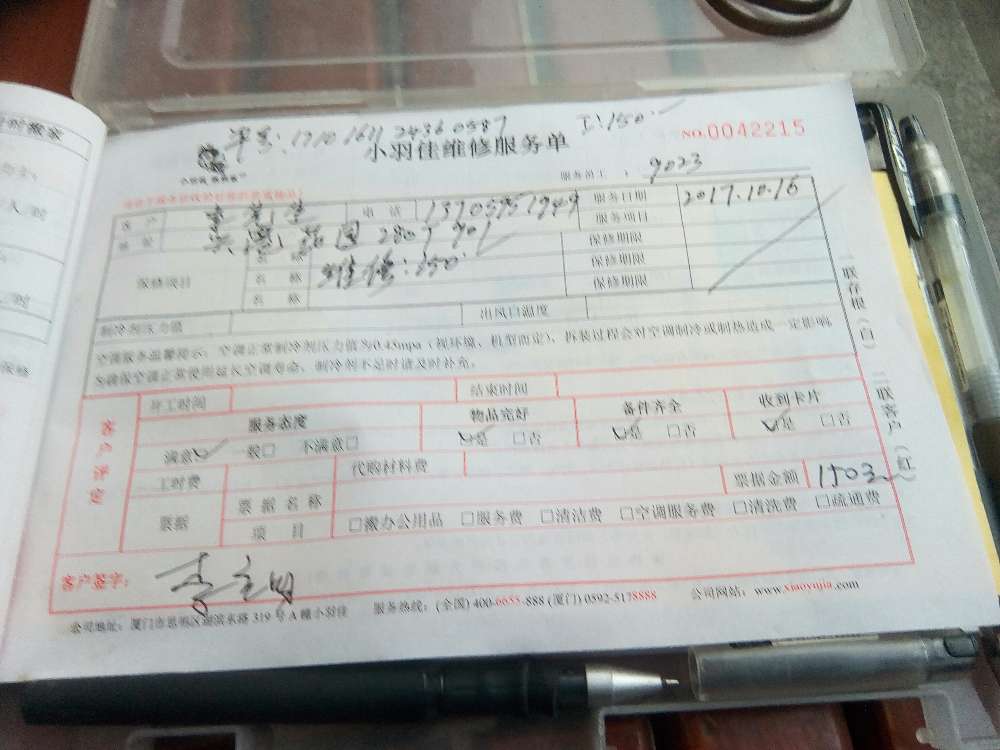 单号:1710161124360587 工:150
NO.0042215
小羽佳维修服务单
服务员工: 9023
客户 李先生 电话 服务日期 2017.10.16
地址 2807 901 服务项目
保修项目 名称 维修:150 保修期限
名称 保修期限
名称 保修期限
制冷剂压力值 出风口温度
空调服务温馨提示:空调正常制冷剂压力值为0.45mpa(视环境、机型而定),拆装过程会对空调制冷或制热造成一定影响
为确保空调正常使用延长空调寿命,制冷剂不足时请及时补充。
一联存根(白) 二联客户(红)
客户评定
开工时间 结束时间
服务态度 物品完好 备件齐全 收到卡片
满意☑ 一般□ 不满意□ ☑是 □否 ☑是 □否 ☑是 □否
工时费 代购材料费 票据金额
票据 票据名称
项目 □搬办公用品 □服务费 □清洁费 □空调服务费 □清洗费 □疏通费
客户签字:
公司地址:厦门市思明区湖滨东路319号A幢小羽佳 服务热线:(全国)400-6655-888 (厦门)0592-5178888 公司网站:www.xiaoyujia.com